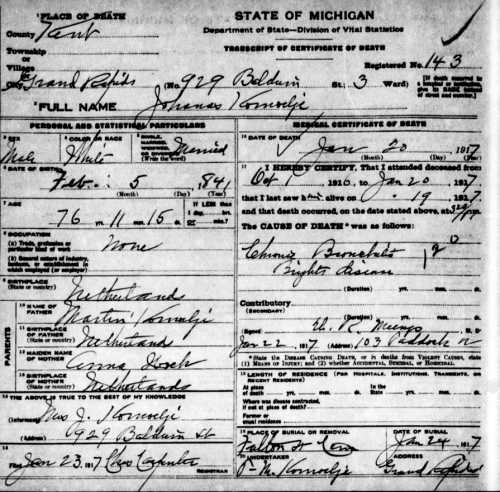 PLACE OF DEATH
STATE OF MICHIGAN
County Kent
Department of State—Division of Vital Statistics
Township
TRANSCRIPT OF CERTIFICATE OF DEATH
or
Village
Registered No. 143
or
City Grand Rapids (No. 929 Baldwin St; 3 Ward)
FULL NAME Johanas Komoelje
PERSONAL AND STATISTICAL PARTICULARS
SEX
COLOR OR RACE
Male White Married
(Write the word)
DATE OF BIRTH
Feb. 5 1841
(Month) (Day) (Year)
AGE
IF LESS than
76 yrs. 11 mos. 15 ds.
OCCUPATION
(a) Trade, profession or particular kind of work None
(b) General nature of industry, business, or establishment in which employed (or employer)
BIRTHPLACE
(State or country) Netherlands
NAME OF FATHER Martin Komoelje
BIRTHPLACE OF FATHER
(State or country) Netherlands
MAIDEN NAME OF MOTHER Anna
BIRTHPLACE OF MOTHER
(State or country) Netherlands
PARENTS
THE ABOVE IS TRUE TO THE BEST OF MY KNOWLEDGE
(Informant) Mrs J. Komoelje
(Address) 929 Baldwin St
Filed Jan 23, 1917 Chas
REGISTRAR
MEDICAL CERTIFICATE OF DEATH
DATE OF DEATH
Jan 20 1917
(Month) (Day) (Year)
I HEREBY CERTIFY, That I attended deceased from
Oct 1 1916, to Jan 20, 1917
that I last saw him alive on 19, 1917
and that death occurred, on the date stated above, at
The CAUSE OF DEATH* was as follows:
Chronic Bronchitis
Brights disease
(Duration) yrs. mos. ds.
Contributory
(SECONDARY)
(Duration) yrs. mos. ds.
(Signed)
Jan 22 1917 (Address) 103 Paddock
*State the DISEASE CAUSING DEATH, or in deaths from VIOLENT CAUSES, state (1) MEANS OF INJURY; and (2) whether ACCIDENTAL, SUICIDAL, or HOMICIDAL.
LENGTH OF RESIDENCE (FOR HOSPITALS, INSTITUTIONS, TRANSIENTS, OR RECENT RESIDENTS)
At place of death yrs. mos. ds. In the State yrs. mos. ds.
Where was disease contracted, if not at place of death?
Former or usual residence
PLACE OF BURIAL OR REMOVAL
DATE OF BURIAL
Fulton St Cem Jan 24 1917
UNDERTAKER
ADDRESS
Komoelje Grand Rapids